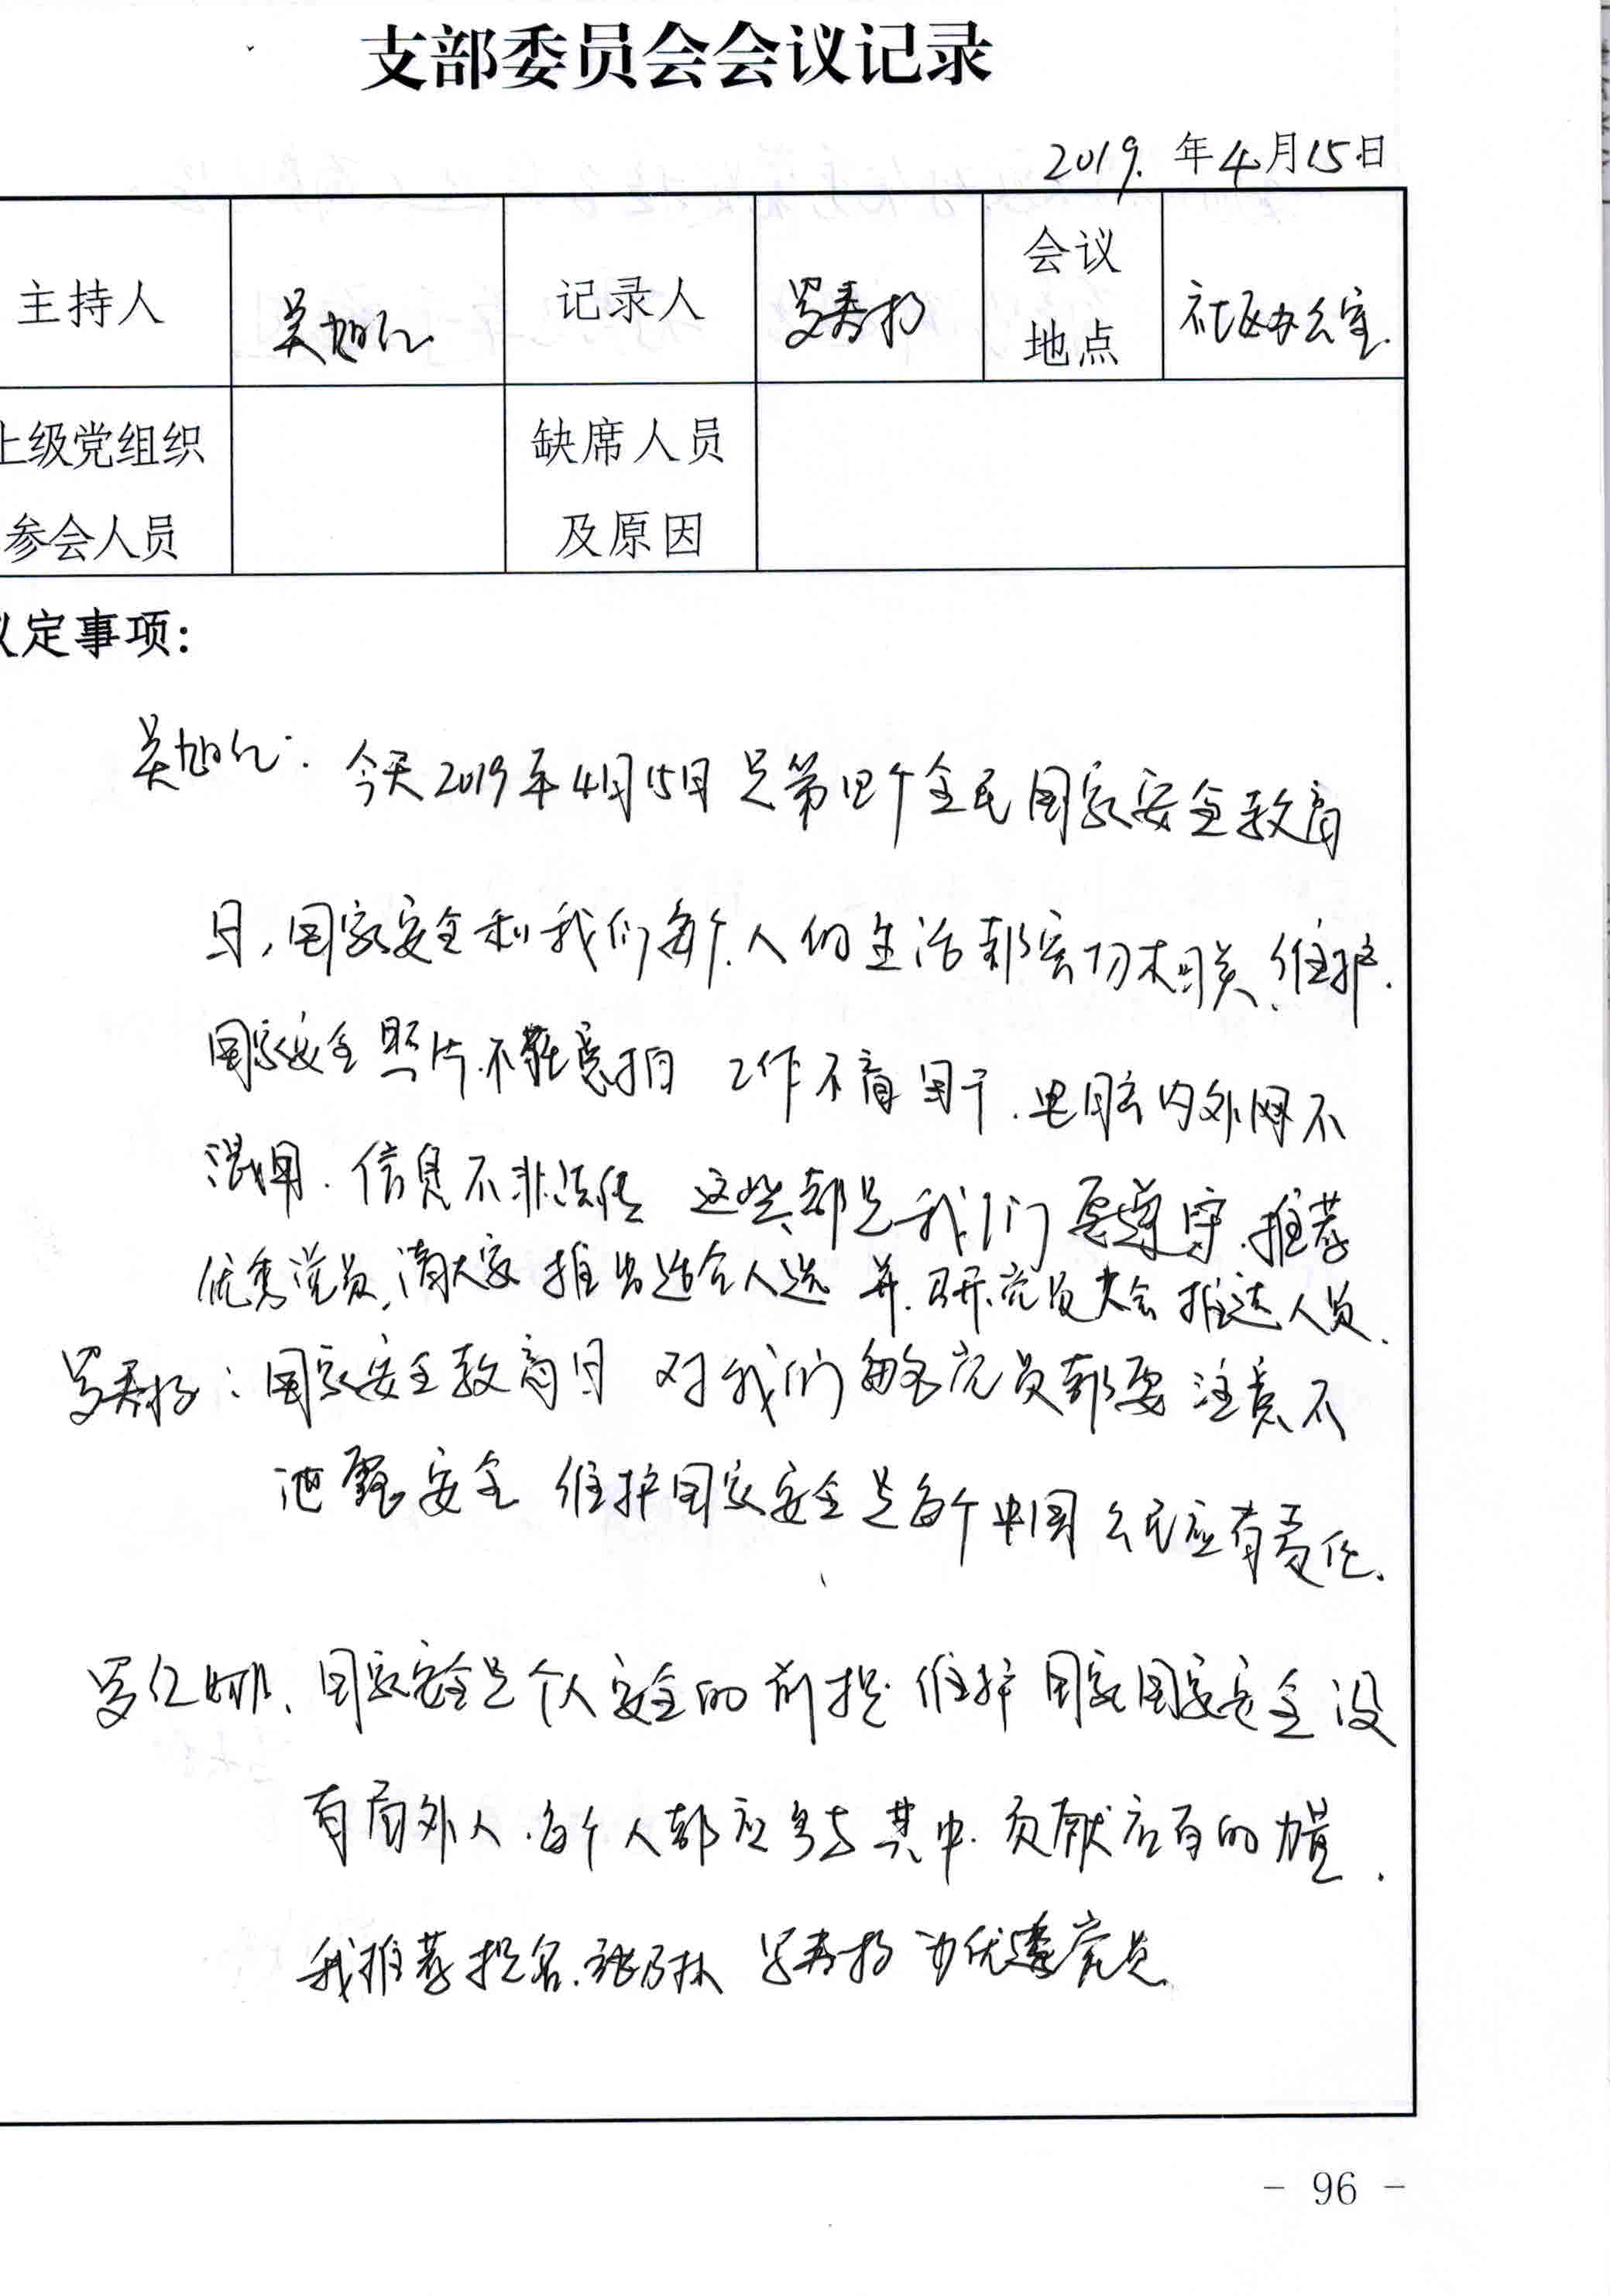 支部委员会会议记录
2019.年4月15日
主持人 吴旭仁 记录人 罗寿杨 会议地点 社区办公室.
上级党组织参会人员 缺席人员及原因
议定事项:
吴旭仁: 今天2019年4月15日是第四个全民国家安全教育
日,国家安全和我们每个人的生活都密切相关、维护.
国家安全照片.不随意拍 工作不 .电脑内外网不
混用.信息不非法传 这些都是我们要遵守.推荐
优秀党员,请大家推出适合人选 并.召开党员大会推选人员.
罗寿杨:国家安全教育日 对我们每名党员都要注意不
泄露安全 维护国家安全是每个中国公民应有责任.
罗仁娜、国家安全是个人安全的前提.维护国家国家安全没
有局外人.每个人都应参与其中.贡献应有的力量.
我推荐提名.张乃林 罗寿杨为优秀党员.
- 96 -